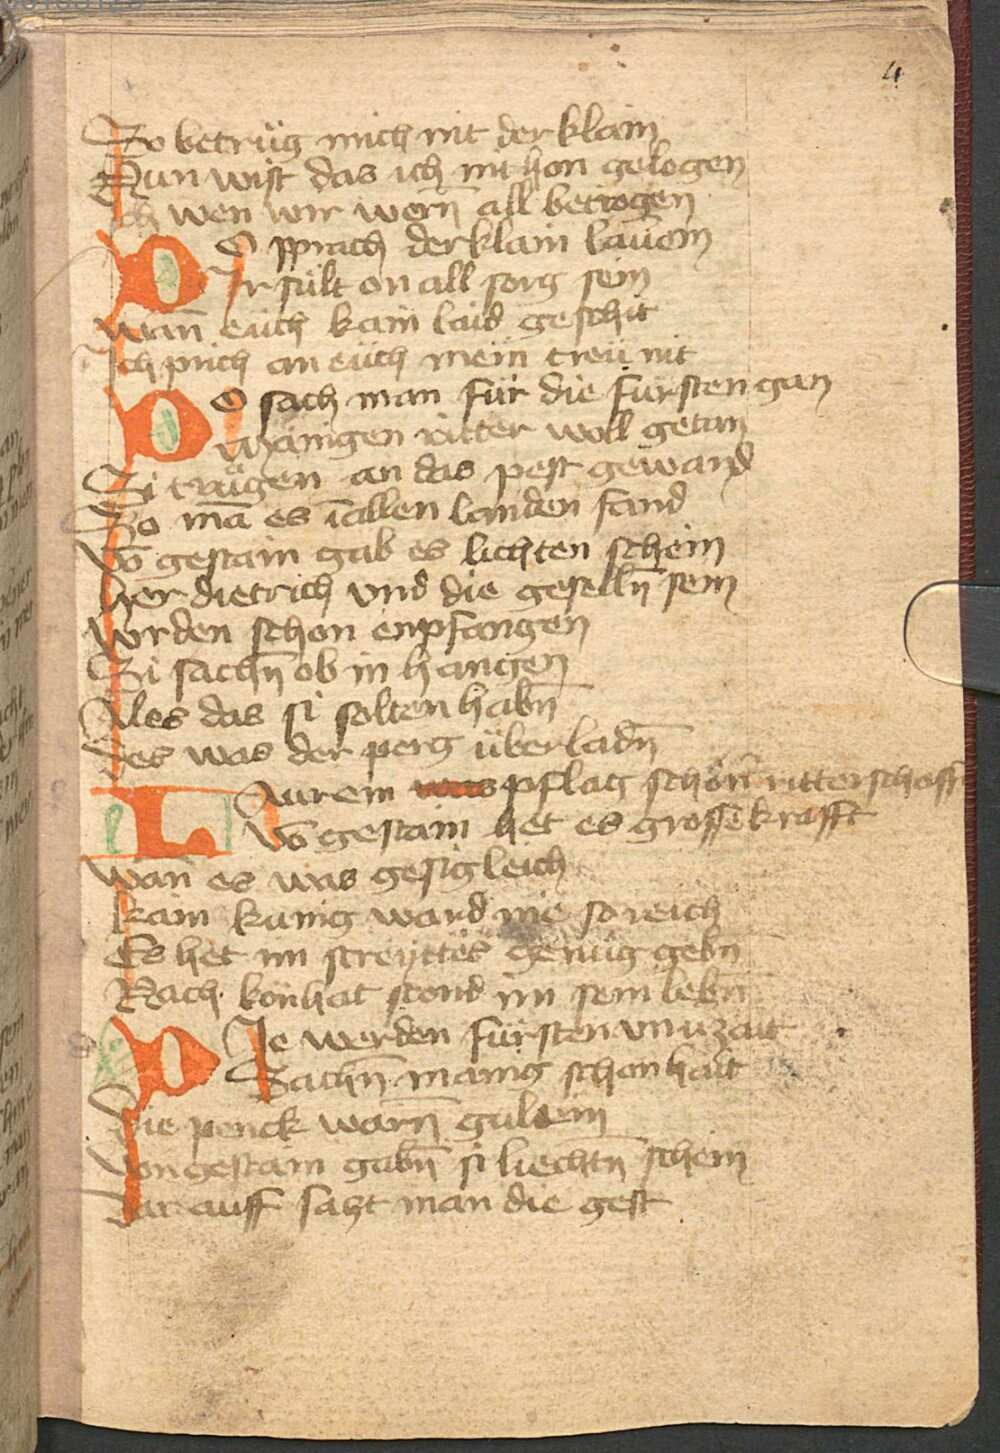 4
So betrüg mich nit der klain
Nun wist das ich nit hon gelogen
Ich wen wir worn̄ all betrogen
DO sprach der klain lauvein
Ir sült on all sorg sein
wan̄ eüch kain laid geschit
Ich prich an eüch mein treü nit
DO sach man für die fürsten gan
Mänigen ritter woll getan
Si trügen an das pest gewand
So mā es ī allen landen fand
Vō gestain gab es lichten schein
her dietrich vnd die geselln̄ sein
Wrden schon enpfangen
Si sachn̄ ob in hangen
Ales das si solten habn̄
Des was der perg überladn̄
LAurein pflag schön̄ ritterschafft
Vō gestain het es grossē krafft
wan̄ es was gesigleich
kain künig ward nie so reich
Es het im streyttes genüg gebn̄
Nach könhat stond im sein lebn̄
DIe werden fürsten vnuzait
Sachn̄ manig schonhait
Die penck warn̄ guldein
Von gestain gabn̄ si liechtn̄ schein
Darauff sazt man die gest